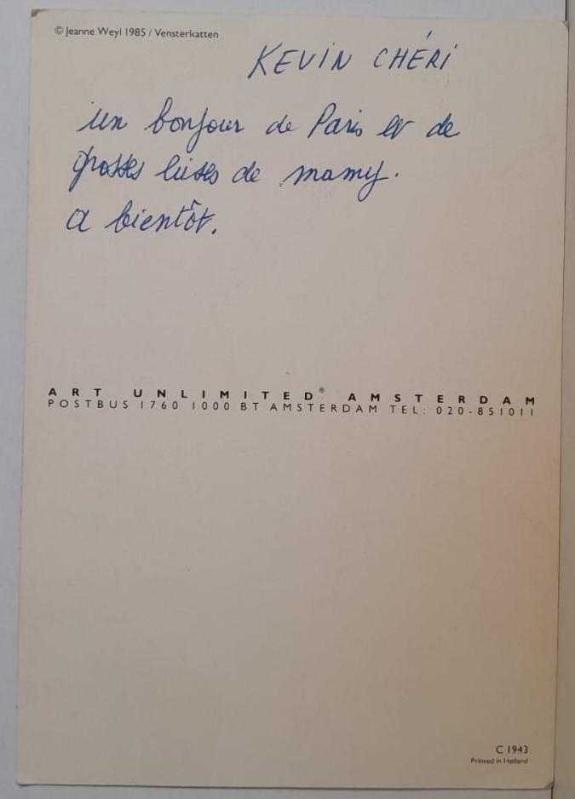 © Jeanne Weyl 1985 / Vensterkatten
KEVIN CHÉRI
un bonjour de Paris et de
grosses bises de mamy.
A bientôt.
ART UNLIMITED® AMSTERDAM
POSTBUS 1760 1000 BT AMSTERDAM TEL: 020-851011
C 1943
Printed in Holland